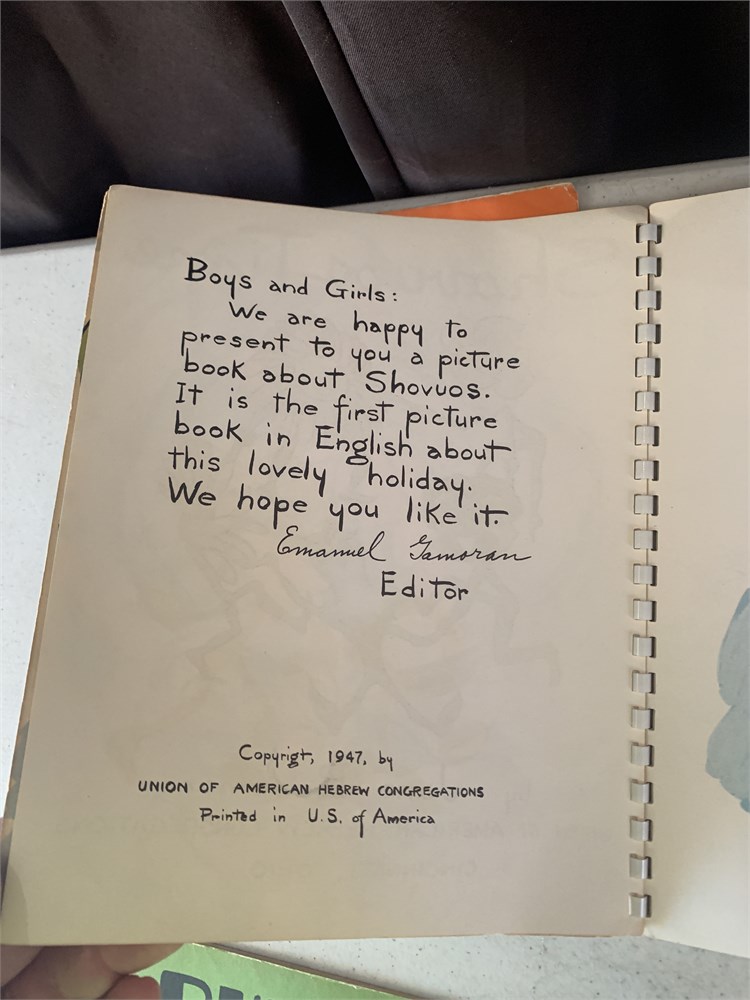 Boys and Girls:
We are happy to
present to you a picture
book about Shovuos.
It is the first picture
book in English about
this lovely holiday.
We hope you like it.
Emanuel Gamoran
Editor
Copyrigt, 1947, by
UNION OF AMERICAN HEBREW CONGREGATIONS
Printed in U.S. of America